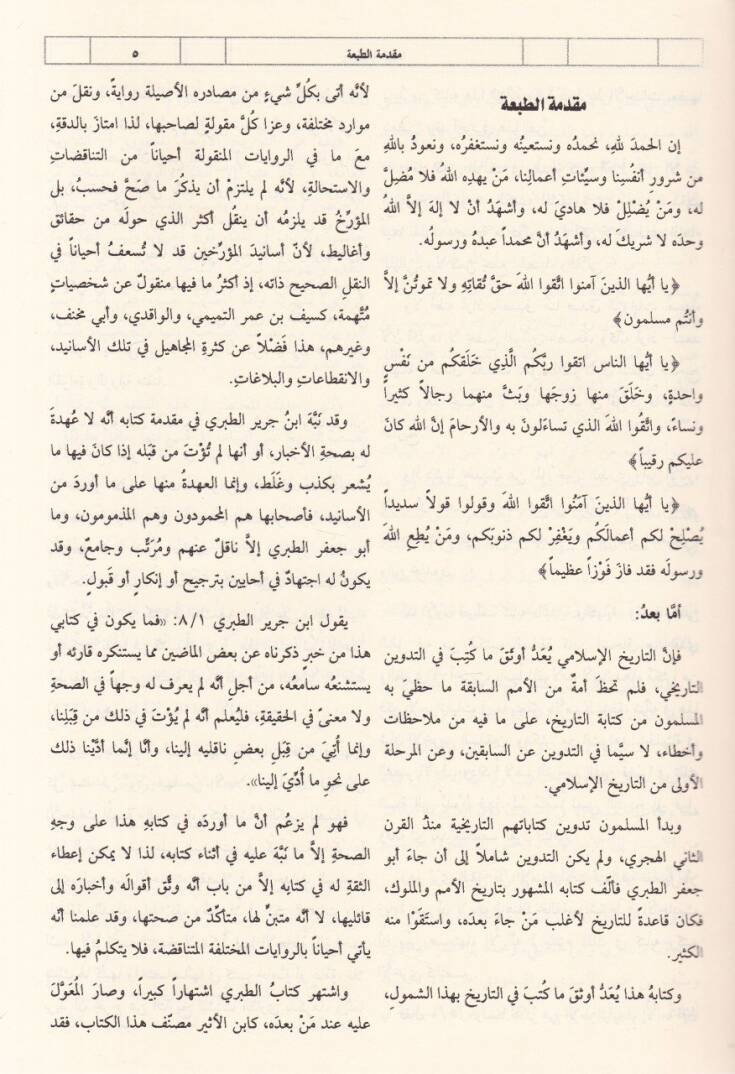 مقدمة الطبعة
٥
مقدمة الطبعة
إن الحمدَ للهِ، نحمدُه ونستعينُه ونستغفرُه، ونعوذُ باللهِ
من شرورِ أنفُسِنا وسيِّئاتِ أعمالِنا، مَنْ يهدِه اللهُ فلا مُضِلَّ
له، ومَنْ يُضْلِلْ فلا هاديَ له، وأشهدُ أنْ لا إلهَ إلاَّ اللهُ
وحدَه لا شريكَ له، وأشهدُ أنَّ محمداً عبدُهُ ورسولُه.
﴿يا أيُّها الذينَ آمنوا اتَّقوا اللهَ حقَّ تُقاتِهِ ولا تموتُنَّ إلاَّ
وأنتُم مسلمون﴾
﴿يا أيُّها الناس اتقوا ربَّكُم الَّذي خَلَقَكُم من نَفْسٍ
واحدةٍ، وخَلَقَ منها زوجَها وبَثَّ منهما رجالاً كثيراً
ونساءً، واتَّقُوا اللهَ الذي تساءَلونَ به والأرحامَ إنَّ الله كانَ
عليكم رقيباً﴾
﴿يا أيُّها الذينَ آمَنُوا اتَّقوا اللهَ وقولوا قولاً سديداً
يُصْلِحْ لكم أعمالَكُم ويَغْفِرْ لكم ذنوبَكم، ومَنْ يُطِعِ اللهَ
ورسولَه فقد فازَ فَوْزاً عظيماً﴾
أمَّا بعدُ:
فإنَّ التاريخَ الإسلامي يُعَدُّ أوثَقَ ما كُتِبَ في التدوين
التاريخي، فلم تحظَ أمةٌ من الأمم السابقة ما حظيَ به
المسلمون من كتابة التاريخ، على ما فيه من ملاحظات
وأخطاء، لا سيَّما في التدوين عن السابقين، وعن المرحلة
الأولى من التاريخ الإسلامي.
وبدأ المسلمون تدوين كتاباتهم التاريخية منذُ القرن
الثاني الهجري، ولم يكن التدوين شاملاً إلى أن جاءَ أبو
جعفر الطبري فألَّف كتابه المشهور بتاريخ الأمم والملوك،
فكان قاعدةً للتاريخ لأغلب مَنْ جاءَ بعدَه، واستَقَوْا منه
الكثير.
وكتابهُ هذا يُعَدُّ أوثقَ ما كُتبَ في التاريخ بهذا الشمولِ،
لأنَّه أتى بكُلِّ شيءٍ من مصادره الأصيلة روايةً، ونقلَ من
موارد مختلفة، وعزا كُلَّ مقولةٍ لصاحبها، لذا امتازَ بالدقةِ،
معَ ما في الروايات المنقولة أحياناً من التناقضات
والاستحالةِ، لأنَّه لم يلتزمْ أن يذكرَ ما صَحَّ فحسبُ، بل
المؤرِّخُ قد يلزمُه أن ينقُل أكثر الذي حولَه من حقائق
وأغاليط، لأنّ أسانيدَ المؤرِّخين قد لا تُسعفُ أحياناً في
النقلِ الصحيح ذاته، إذ أكثرُ ما فيها منقولٌ عن شخصياتٍ
مُتَّهمة، كسيف بن عمر التميمي، والواقدي، وأبي مخنف،
وغيرهم، هذا فَضْلاً عن كثرةِ المجاهيل في تلك الأسانيد،
والانقطاعاتِ والبلاغاتِ.
وقد نَبَّهَ ابنُ جرير الطبري في مقدمة كتابه أنَّه لا عُهدةَ
له بصحةِ الأخبار، أو أنها لم تُؤْتَ من قبَله إذا كانَ فيها ما
يُشعر بكذب وغَلَط، وإنما العهدةُ منها على ما أوردَ من
الأسانيد، فأصحابها هم المحمودون وهم المذمومون، وما
أبو جعفر الطبري إلاَّ ناقلٌ عنهم ومُرَتِّب وجامعٌ، وقد
يكونُ له اجتهادٌ في أحايين بترجيح أو إنكارٍ أو قَبولٍ.
يقول ابن جرير الطبري ٨/١: «فما يكون في كتابي
هذا من خبرٍ ذكرناه عن بعض الماضين مما يستنكره قارئه أو
يستشنعُه سامعُه، من أجلِ أنَّه لم يعرف له وجهاً في الصحةِ
ولا معنىً في الحقيقةِ، فليُعلم أنَّه لم يُؤْتَ في ذلك من قِبَلِنا،
وإنما أُتِيَ من قِبَلِ بعضِ ناقليه إلينا، وأنَّا إنَّما أدَّيْنا ذلك
على نحوِ ما أُدِّيَ إلينا».
فهو لم يزعُم أنَّ ما أوردَه في كتابهِ هذا على وجهِ
الصحةِ إلاَّ ما نَبَّهَ عليه في أثناء كتابه، لذا لا يمكن إعطاء
الثقةِ له في كتابِه إلاَّ من باب أنَّه وثَّق أقوالَه وأخبارَه إلى
قائليها، لا أنَّه متبنٍّ لها، متأكِّدٌ من صحتها، وقد علمنا أنَّه
يأتي أحياناً بالروايات المختلفة المتناقضة، فلا يتكلمُ فيها.
واشتهر كتابُ الطبري اشتهاراً كبيراً، وصارَ المُعَوَّلَ
عليه عند مَنْ بعدَه، كابن الأثير مصنّف هذا الكتاب، فقد